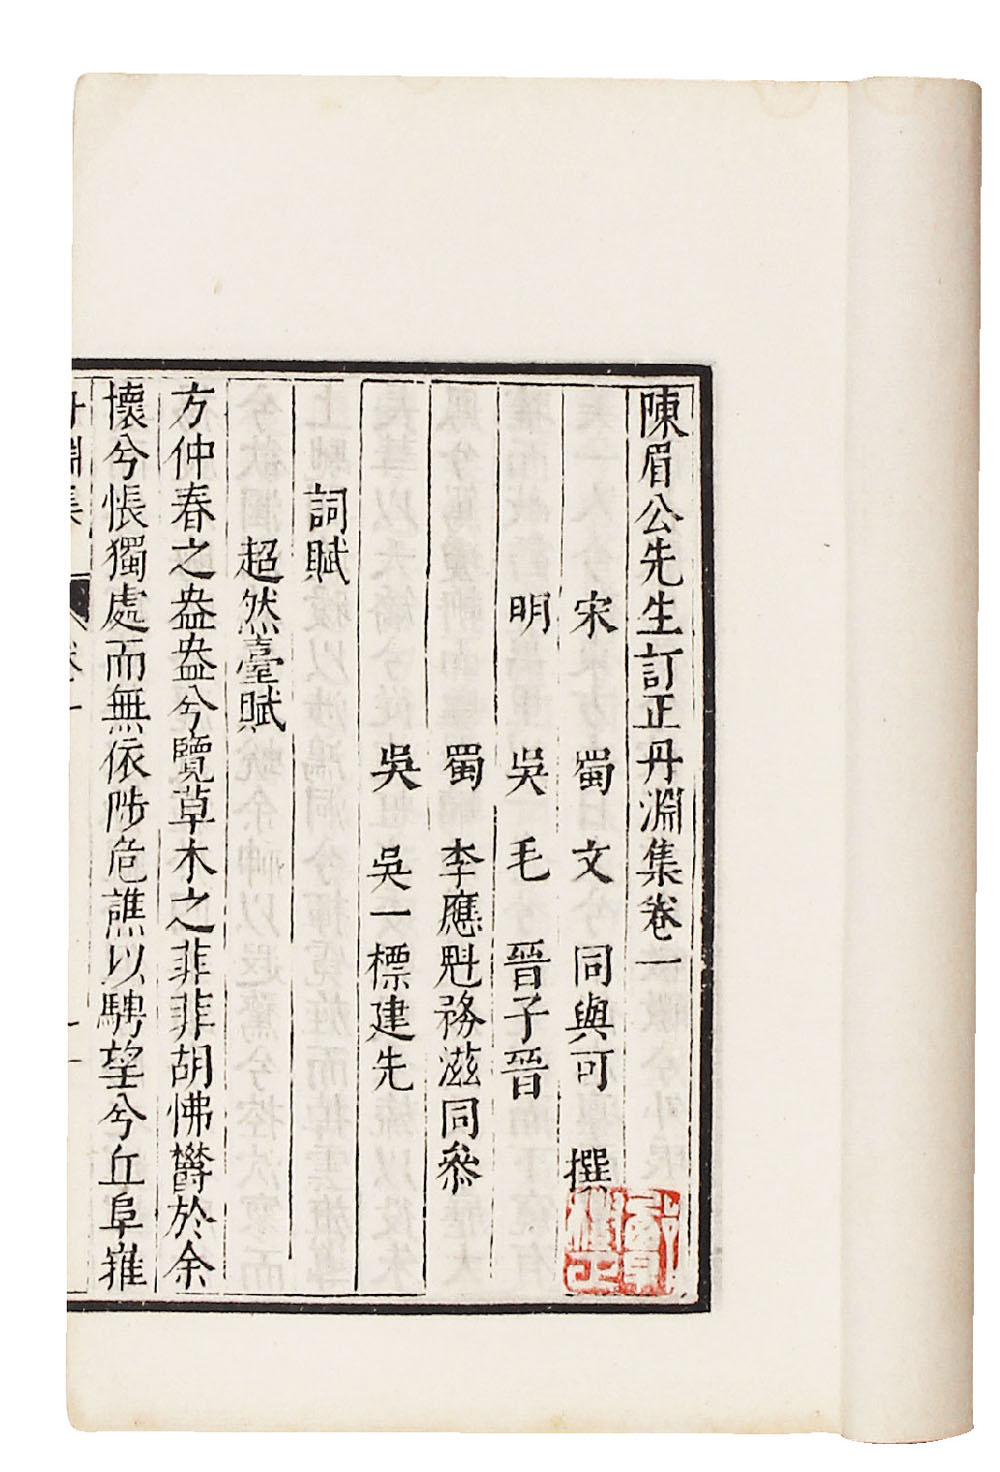 陳眉公先生訂正丹淵集卷一
宋 蜀 文 同與可 撰
明 吳 毛 晉子晉
蜀 李應魁務滋同叅
吳 吳一標建先
詞賦
超然臺賦
方仲春之盎盎兮覽草木之菲菲胡怫欝於余
懷兮悵獨處而無依陟危譙以騁望兮丘阜摧
丹淵集 卷一 一